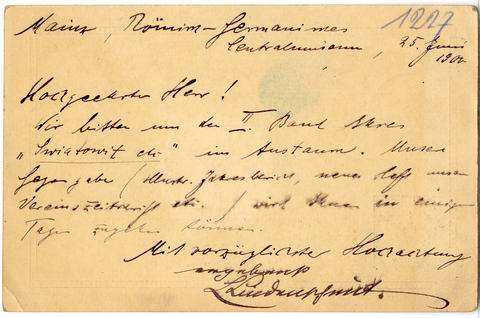 1227
Mainz, Römisch-Germanisches
Centralmuseum, 25. Juni
1902
Hochgeehrter Herr!
Wir bitten um den II. Band Ihres
„Swiatowit etc" im Austausch. Unsere
Gegengabe (Illustr. Jahresbericht, neues Heft unserer
Vereinszeitschrift etc.) wird Ihnen in einigen
Tagen zugehen können.
Mit vorzüglichster Hochachtung
ergebenst
Lindenschmit.